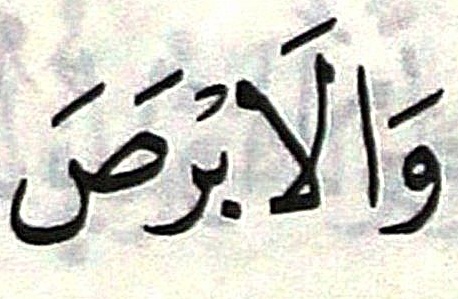 وَالَابْرَصَ